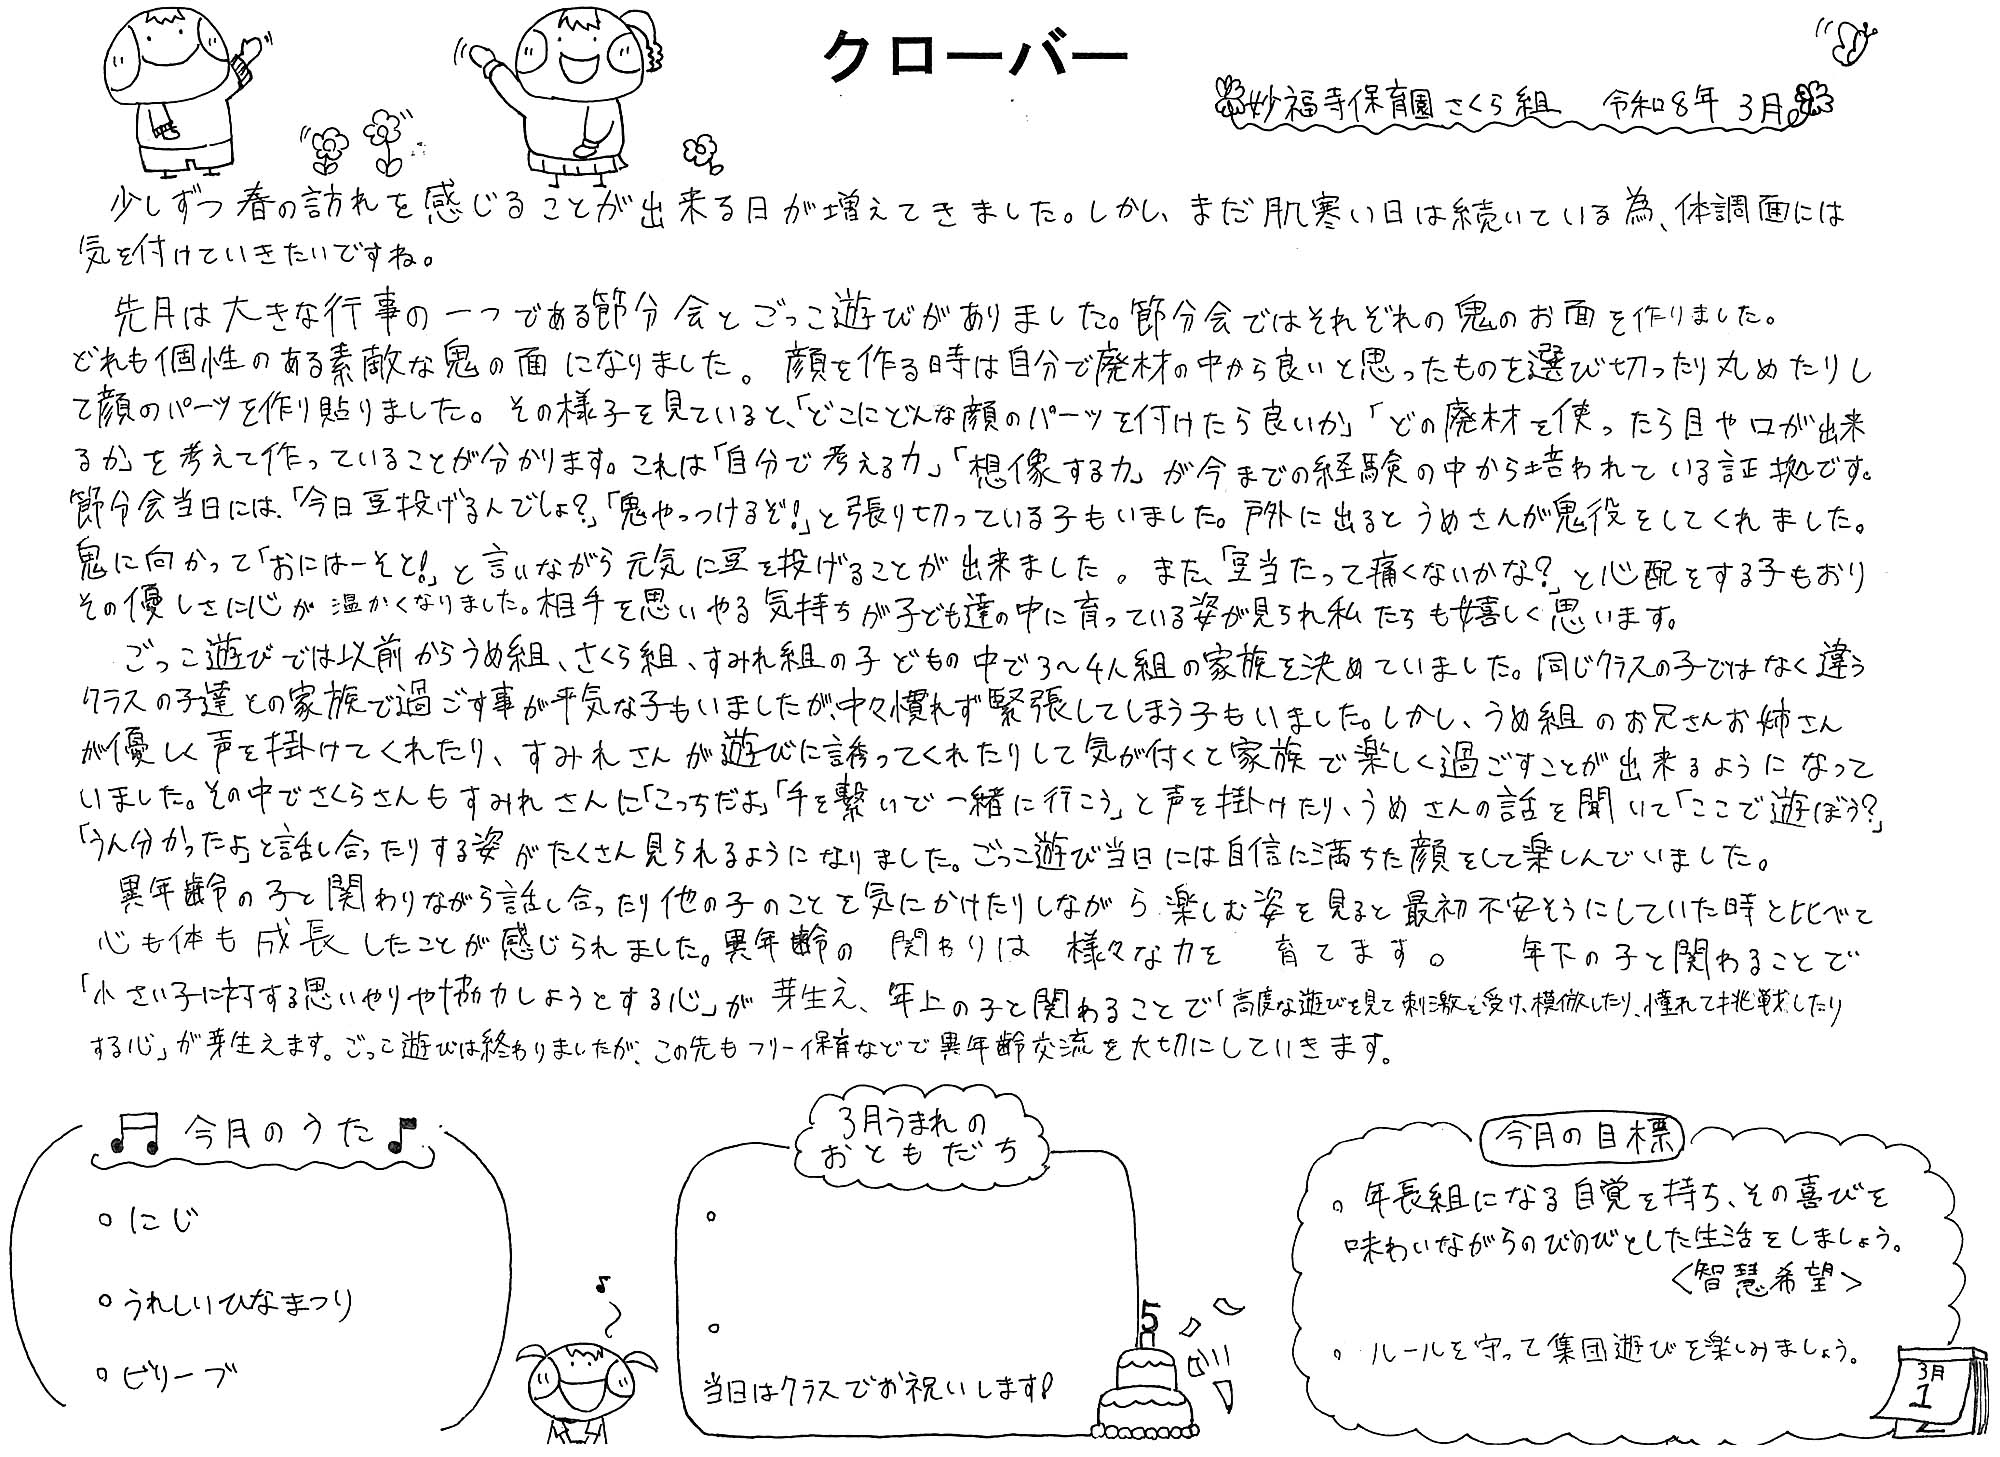 クローバー
妙福寺保育園さくら組 令和8年 3月
少しずつ春の訪れを感じることが出来る日が増えてきました。しかし、まだ肌寒い日は続いている為、体調面には
気を付けていきたいですね。
先月は大きな行事の一つである節分会とごっこ遊びがありました。節分会ではそれぞれの鬼のお面を作りました。
どれも個性のある素敵な鬼の面になりました。顔を作る時は自分で廃材の中から良いと思ったものを選び切ったり丸めたりし
て顔のパーツを作り貼りました。その様子を見ていると、「どこにどんな顔のパーツを付けたら良いか」「どの廃材を使ったら目や口が出来
るか」を考えて作っていることが分かります。これは「自分で考える力」「想像する力」が今までの経験の中から培われている証拠です。
節分会当日には、「今日豆投げるんでしょ?」「鬼やっつけるぞ!」と張り切っている子もいました。戸外に出るとうめさんが鬼役をしてくれました。
鬼に向かって「おにはーそと!」と言いながら元気に豆を投げることが出来ました。また、「豆当たって痛くないかな?」と心配をする子もおり
その優しさに心が温かくなりました。相手を思いやる気持ちが子ども達の中に育っている姿が見られ私たちも嬉しく思います。
ごっこ遊びでは以前からうめ組、さくら組、すみれ組の子どもの中で3～4人組の家族を決めていました。同じクラスの子ではなく違う
クラスの子達との家族で過ごす事が平気な子もいましたが、中々慣れず緊張してしまう子もいました。しかし、うめ組のお兄さんお姉さん
が優しく声を掛けてくれたり、すみれさんが遊びに誘ってくれたりして気が付くと家族で楽しく過ごすことが出来るようになって
いました。その中でさくらさんもすみれさんに「こっちだよ」「手を繋いで一緒に行こう」と声を掛けたり、うめさんの話を聞いて「ここで遊ぼう?」
「うん分かったよ」と話し合ったりする姿がたくさん見られるようになりました。ごっこ遊び当日には自信に満ちた顔をして楽しんでいました。
異年齢の子と関わりながら話し合ったり他の子のことを気にかけたりしながら楽しむ姿を見ると最初不安そうにしていた時と比べて
心も体も成長したことが感じられました。異年齢の関わりは様々な力を育てます。年下の子と関わることで
「小さい子に対する思いやりや協力しようとする心」が芽生え、年上の子と関わることで「高度な遊びを見て刺激を受け、模倣したり、憧れて挑戦したり
する心」が芽生えます。ごっこ遊びは終わりましたが、この先もフリー保育などで異年齢交流を大切にしていきます。
今月のうた
○にじ
○うれしいひなまつり
○ビリーブ
3月うまれの
おともだち
○
○
当日はクラスでお祝いします!
5
今月の目標
○年長組になる自覚を持ち、その喜びを
味わいながらのびのびとした生活をしましょう。
<智慧希望>
○ルールを守って集団遊びを楽しみましょう。
3月
1
2